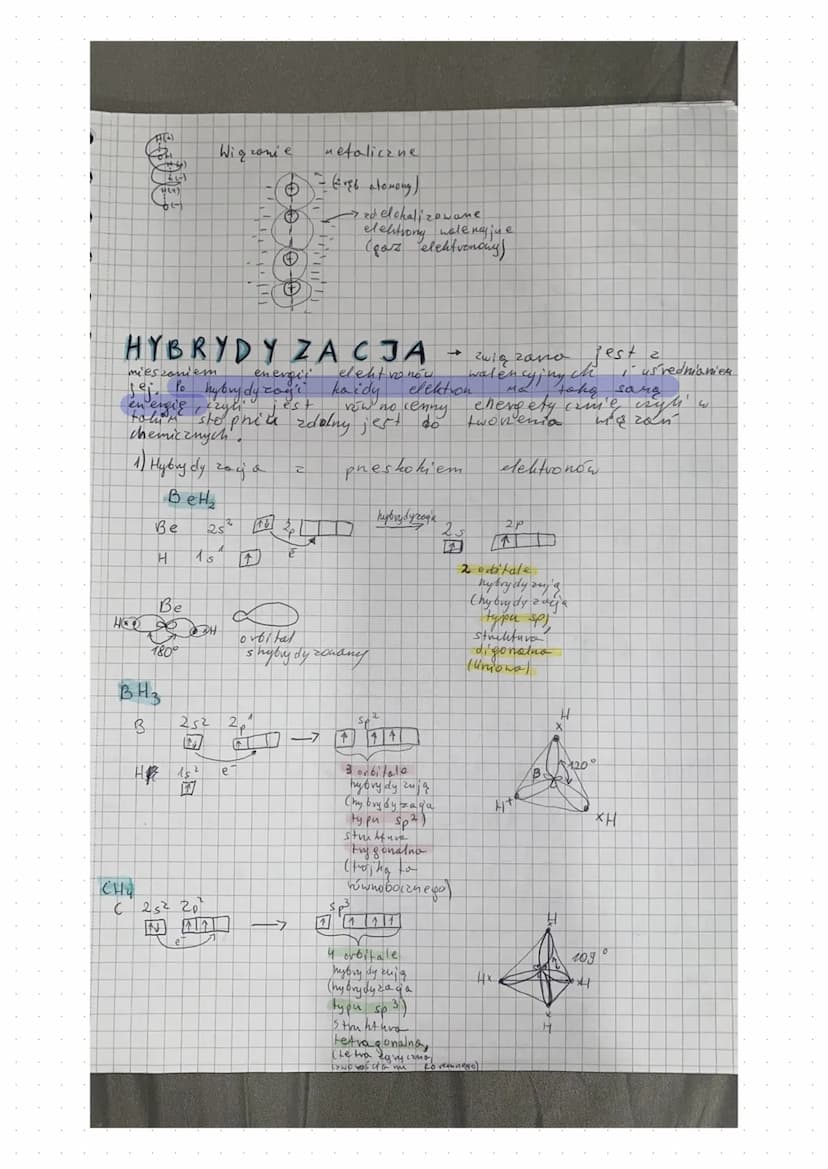 Wiązanie metaliczne
(zrąb atomowy)
→ zdelokalizowane
elektrony walencyjne
(gaz elektronowy)
HYBRYDYZACJA → związana jest z
mieszaniem energii elektronów walencyjnych i uśrednianiem
jej. Po hybrydyzacji każdy elektron ma taką samą
energię, czyli jest równocenny energetycznie czyli w
takim stopniu zdolny jest do tworzenia wiązań
chemicznych.
1) Hybrydyzacja z przeskokiem elektronów
BeH₂
Be 2s² ↑↓ 2p hybrydyzacja 2s ↑ 2p ↑
H 1s¹ ↑ e⁻
2 orbitale
hybrydyzują
(hybrydyzacja
typu sp)
struktura
digonalna
(liniowa)
Be
H H
180°
orbital
shybrydyzowany
BH₃
B 2s² 2p¹ → sp²
↑↓ ↑ ↑ ↑ ↑
H 1s² e⁻
↑
3 orbitale
hybrydyzują
(hybrydyzacja
typu sp²)
struktura
trygonalna
(trójkąta
równobocznego)
H
x
120°
B
H+
xH
CH₄
C 2s² 2p² → sp³
↑↓ ↑ ↑ ↑ ↑ ↑ ↑
e⁻
4 orbitale
hybrydyzują
(hybrydyzacja
typu sp³)
struktura
tetragonalna,
H
109°
Hx xH
x
H